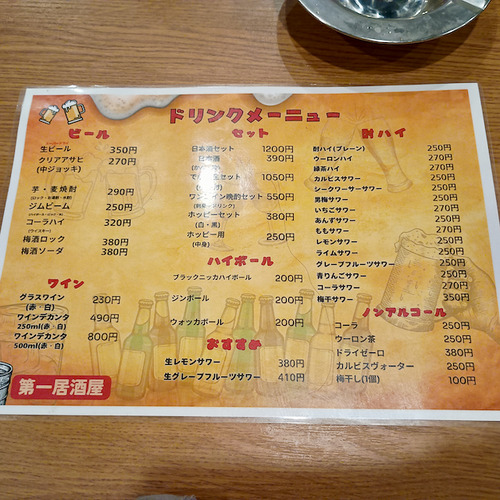 ドリンクメーニュー
ビール
生ビール 350円
クリアアサヒ 270円
(中ジョッキ)
芋・麦焼酎 290円
ジムビーム 250円
コーラハイ 320円
(ウイスキー)
梅酒ロック 380円
梅酒ソーダ 380円
ワイン
グラスワイン 230円
(赤・白)
ワインデカンタ 490円
250ml(赤・白)
ワインデカンタ 800円
500ml(赤・白)
セット
日本酒セット 1200円
日本酒 390円
セット 1050円
晩酌セット 550円
ホッピーセット 380円
(白・黒)
ホッピー用 250円
(中身)
ハイボール
ブラックニッカハイボール 200円
ジンボール 200円
ウォッカボール 200円
おすすめ
生レモンサワー 380円
生グレープフルーツサワー 410円
酎ハイ
酎ハイ(プレーン) 250円
ウーロンハイ 270円
緑茶ハイ 270円
カルピスサワー 250円
シークワーサーサワー 250円
男梅サワー 250円
いちごサワー 270円
あんずサワー 250円
ももサワー 270円
レモンサワー 250円
ライムサワー 250円
グレープフルーツサワー 250円
青りんごサワー 250円
コーラサワー 270円
梅干サワー 350円
ノンアルコール
コーラ 250円
ウーロン茶 250円
ドライゼーロ 380円
カルピスヴォーター 250円
梅干し(1個) 100円
第一居酒屋